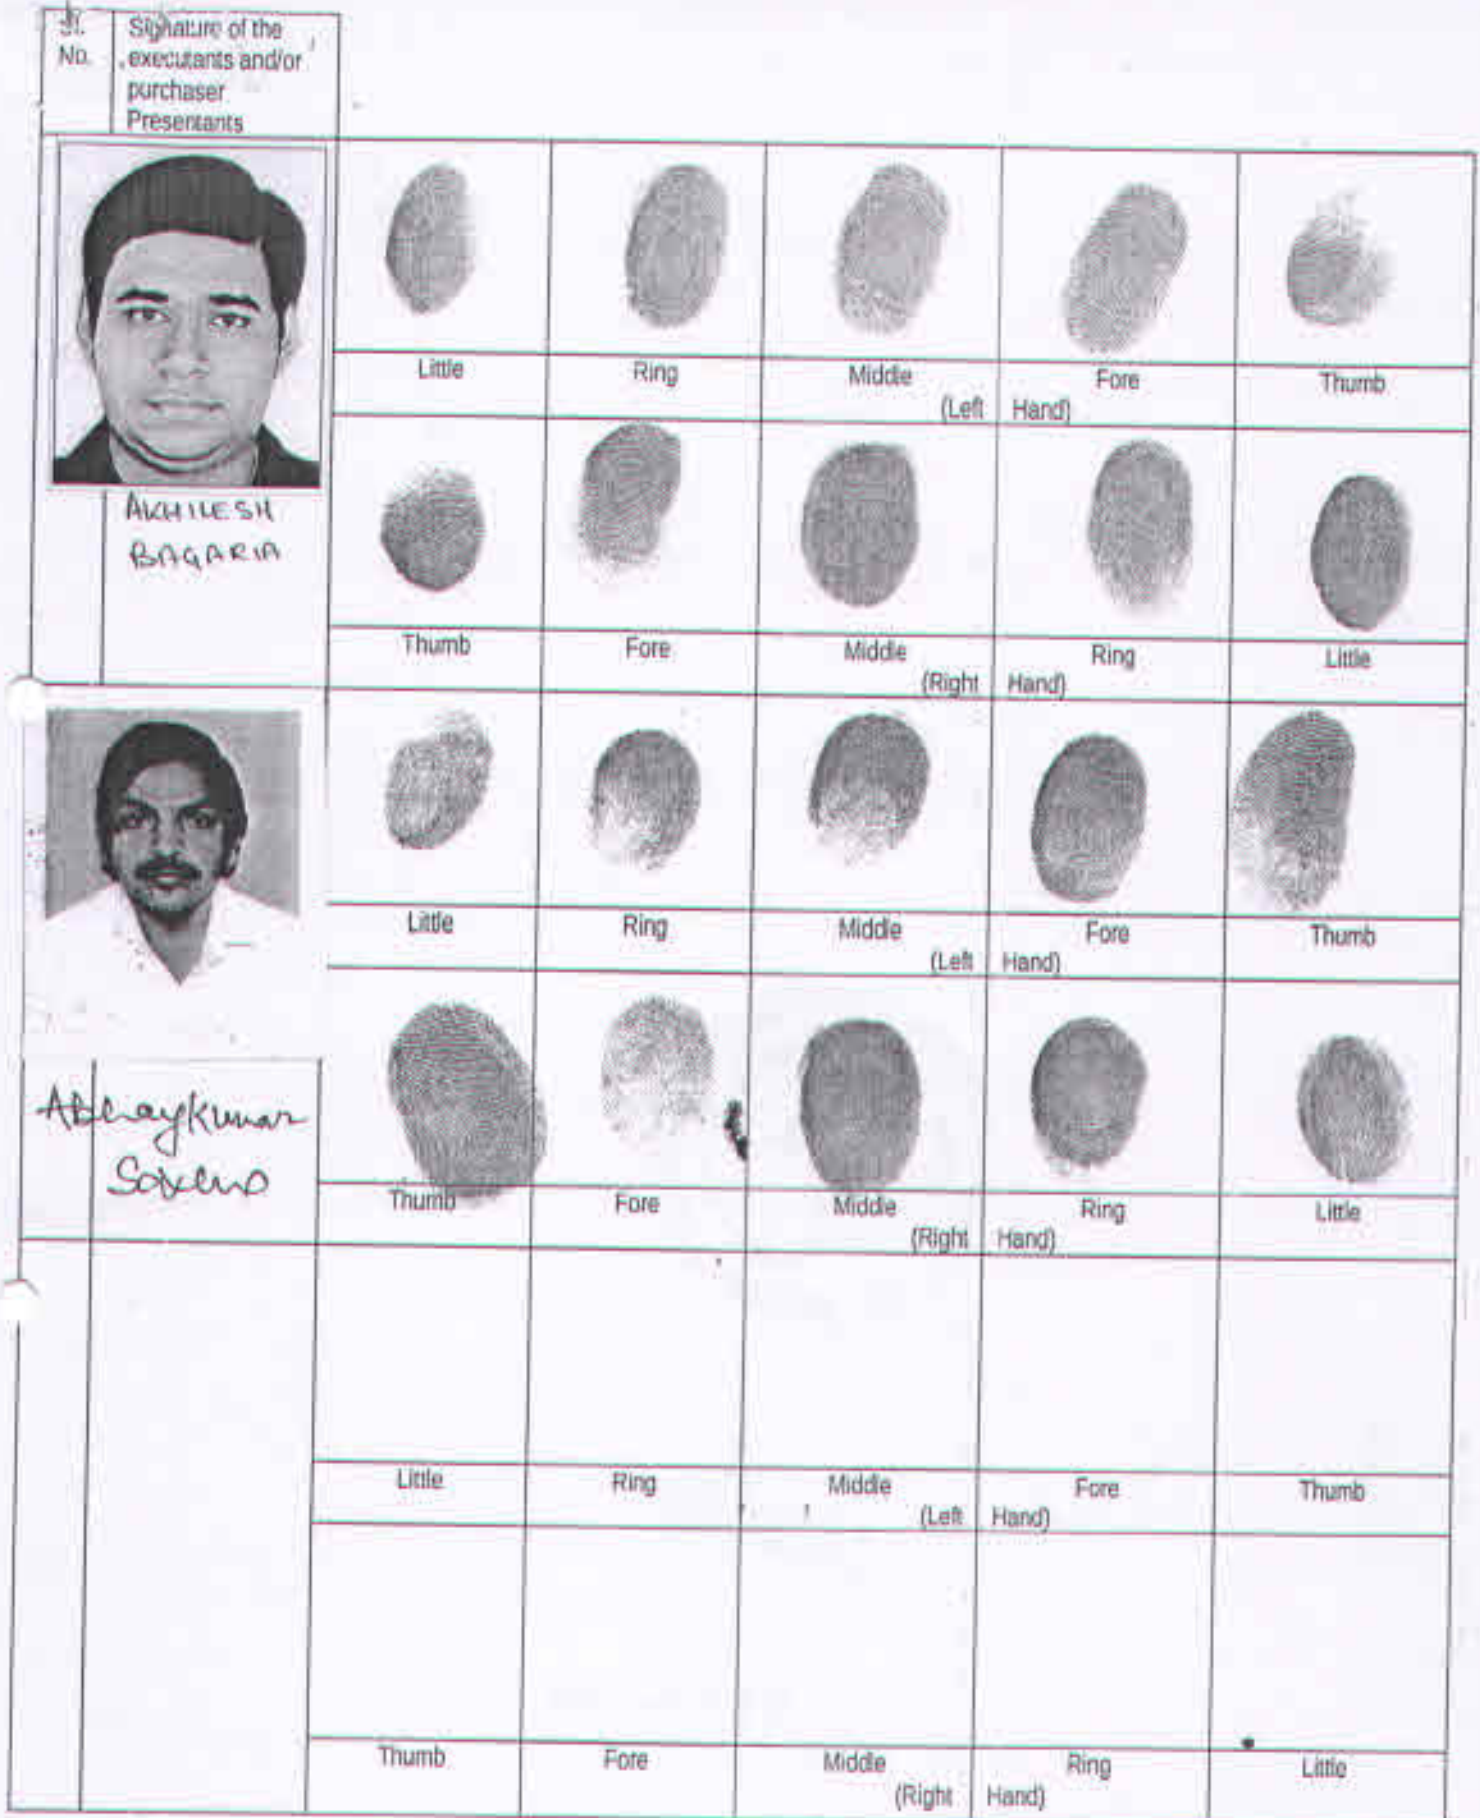 Sl.
No.
Signature of the
executants and/or
purchaser
Presentants
Little Ring Middle Fore Thumb
(Left Hand)
AKHILESH
BAGARIA
Thumb Fore Middle Ring Little
(Right Hand)
Little Ring Middle Fore Thumb
(Left Hand)
Abhaykumar
Thumb Fore Middle Ring Little
(Right Hand)
Little Ring Middle Fore Thumb
(Left Hand)
Thumb Fore Middle Ring Little
(Right Hand)